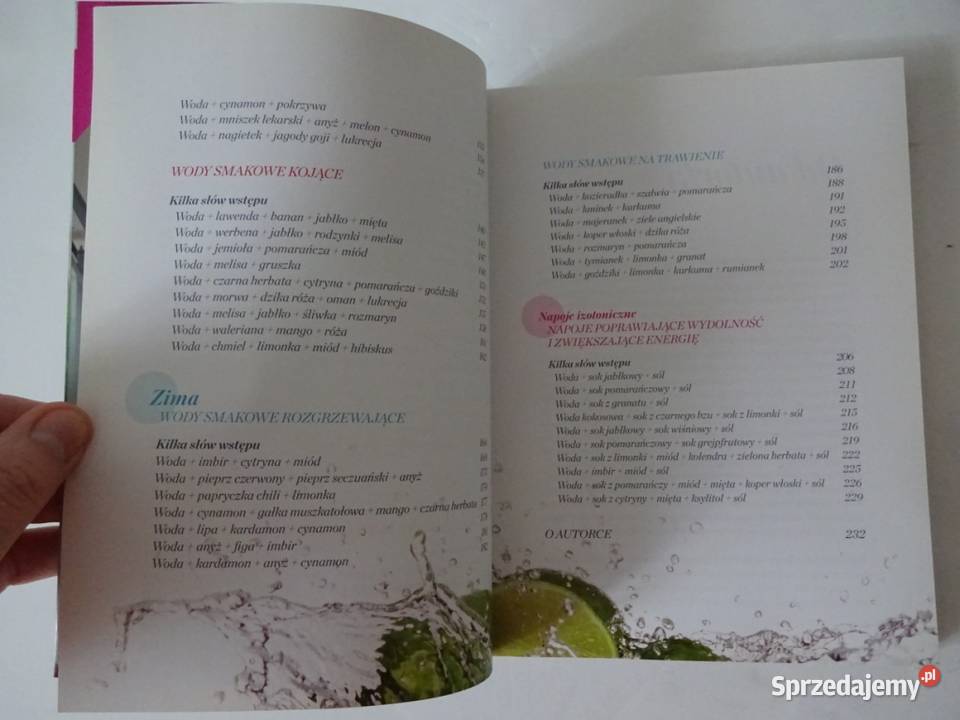 Woda + cynamon + pokrzywa
Woda + mniszek lekarski + anyż + melon + cynamon
Woda + nagietek + jagody goji + lukrecja
WODY SMAKOWE KOJĄCE
Kilka słów wstępu
Woda + lawenda + banan + jabłko + mięta
Woda + werbena + jabłko + rodzynki + melisa
Woda + jemioła + pomarańcza + miód
Woda + melisa + gruszka
Woda + czarna herbata + cytryna + pomarańcza + goździki
Woda + morwa + dzika róża + oman + lukrecja
Woda + melisa + jabłko + śliwka + rozmaryn
Woda + waleriana + mango + róża
Woda + chmiel + limonka + miód + hibiskus
Zima
WODY SMAKOWE ROZGRZEWAJĄCE
Kilka słów wstępu
Woda + imbir + cytryna + miód
Woda + pieprz czerwony + pieprz seczuański + anyż
Woda + papryczka chili + limonka
Woda + cynamon + gałka muszkatołowa + mango + czarna herbata
Woda + lipa + kardamon + cynamon
Woda + anyż + figa + imbir
Woda + kardamon + anyż + cynamon
WODY SMAKOWE NA TRAWIENIE
Kilka słów wstępu 186
Woda + kozieradka + szałwia + pomarańcza 188
Woda + kminek + karkuma 191
Woda + majeranek + ziele angielskie 192
Woda + koper włoski + dzika róża 195
Woda + rozmaryn + pomarańcza 198
Woda + tymianek + limonka + granat 201
Woda + goździki + limonka + karkuma + rumianek 202
Napoje izotoniczne
NAPOJE POPRAWIAJĄCE WYDOLNOŚĆ
I ZWIĘKSZAJĄCE ENERGIĘ
Kilka słów wstępu 206
Woda + sok jabłkowy + sól 208
Woda + sok pomarańczowy + sól 211
Woda + sok z granatu + sól 212
Woda kokosowa + sok z czarnego bzu + sok z limonki + sól 215
Woda + sok jabłkowy + sok wiśniowy + sól 216
Woda + sok pomarańczowy + sok grejpfrutowy + sól 219
Woda + sok z limonki + miód + kolendra + zielona herbata + sól 222
Woda + imbir + miód + sól 225
Woda + sok z pomarańczy + miód + mięta + koper włoski + sól 226
Woda + sok z cytryny + mięta + ksylitol + sól 229
O AUTORCE 232
Sprzedajemy.pl